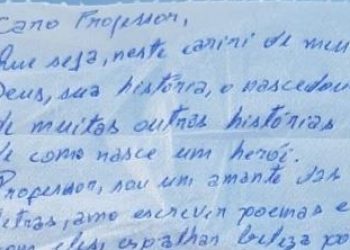 Caro Professor,
Que seja, neste cariri de meu
Deus, sua história, o nascedou
de muitas outras histórias
de como nasce um herói.
Professor, sou um amante das
letras, amo escrever poemas e
com eles espalhar beleza po